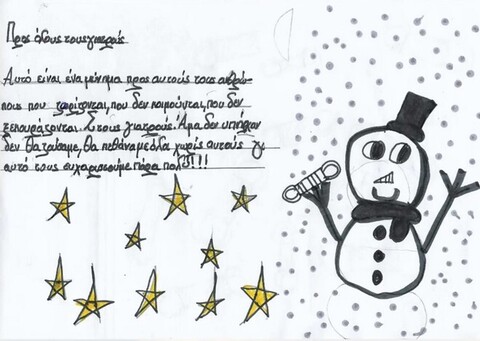 Προς όλους τους γιατρούς
Αυτό είναι ένα μήνημα προς αυτούς τους ανθρώ-
πους που που δεν κοιμούνται, που δεν
ξεκουράζονται. Στους γιατρούς. Άμα δεν υπήρχαν
δεν θα ζούσαμε, θα πεθάναμε όλα χωρίς αυτούς γι
αυτό τους ευχαριστούμε πάρα πολύ!!!